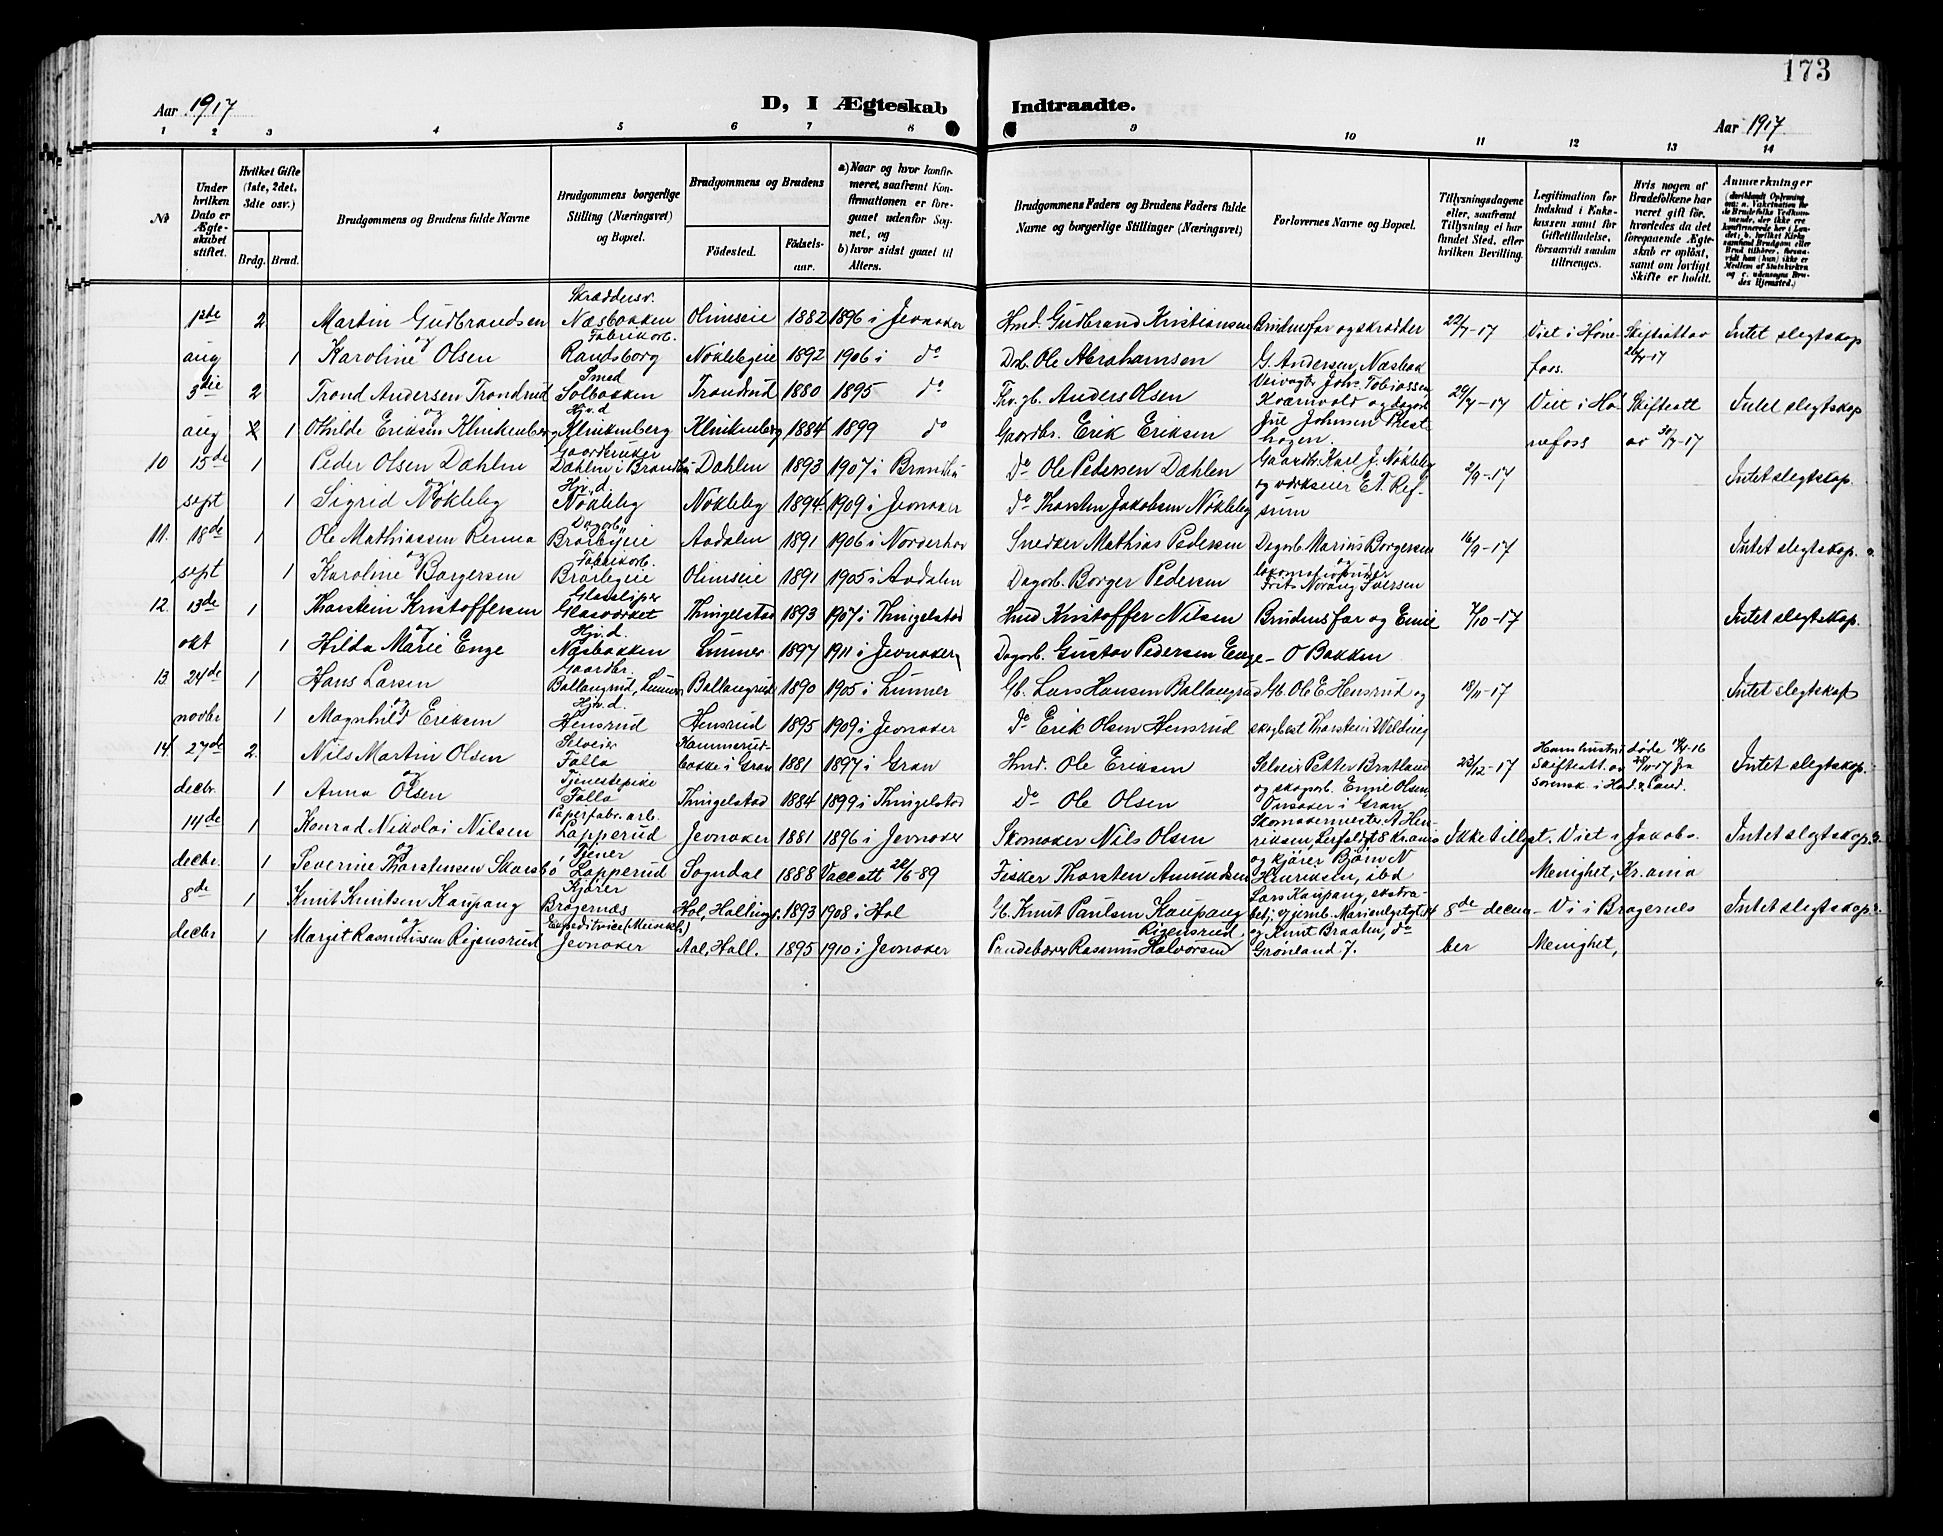 173
Aar 1917
D, I Ægteskab Indtraadte.
Aar 1917
1 2 3 4 5 6 7 8 9 10 11 12 13 14
No
Under hvilken Dato er Ægteskabet stiftet.
Hvilket Gifte (1ste, 2det, 3die osv.)
Brdg. Brud.
Brudgommens og Brudens fulde Navne
Brudgommens borgerlige Stilling (Næringsvei) og Bopæl.
Brudgommens og Brudens
Fødested. Fødselsaar.
a) Naar og hvor konfirmeret, saafremt Konfirmationen er foregaaet udenfor Sognet, og
b) hvor sidst gaaet til Alters.
Brudgommens Faders og Brudens Faders fulde Navne og borgerlige Stillinger (Næringsvei)
Forlovernes Navne og Bopæl.
Tillysningsdagene eller, saafremt Tillysning ei har fundet Sted, efter hvilken Bevilling.
Legitimation for Indskud i Enkekassen samt for Giftetilladelse, forsaavidt saadan tiltrænges.
Hvis nogen af Brudefolkene har været gift før, hvorledes da det foregaaende Ægteskab er opløst, samt om lovligt Skifte er holdt.
Anmærkninger
Skræddersv.
1ste 2 Martin Gudbrandsen Næsbakken Olimseie 1882 1896 i Jevnaker Hmd. Gudbrand Kristiansen Brudens far og skrædder 22/7-17 Viet i Høne- Skifteatt av Intet slegtskap
og Fabrikarb.
aug 1 Karoline Olsen Randsborg Nøklebyeie 1892 1906 i do Drb. Ole Abrahamsen G. Andersen, Næsbak foss. 26/7-17
Smed
3die 2 Trond Andersen Trondrud Solbakken Trondrud 1880 1895 do Thv. gb. Anders Olsen Joh. Tobiassen Kværnvold og dagarb 29/7-17 Viet i Hø- Skifteatt Intet slegtskap
og Hjv.d
aug 2 1 Othilde Eriksen Klinkenberg Klinkenberg Klinkenberg 1884 1899 do Gaardbr. Erik Eriksen Johnsen Præsthagen. nefoss av 30/7-17
Gaardbruker
10 15de 1 Peder Olsen Dæhlen Dæhlen i Brandbu Dæhlen 1893 1907 i Brandbu Do Ole Pedersen Dæhlen Gaardb. Karl J. Nøkleby 2/9-17 Intet slegtskap.
og Hjv.d.
sept 1 Sigrid Nøkleby Nøkleby Nøkleby 1894 1909 i Jevnaker do Thorsten Jakobsen Nøkleby og verkseier E.A. Refsum
Dagarb.
11. 18de 1 Ole Mathiassen Renna Braabyeie Aadalen 1891 1906 i Norderhov Snedker Mathias Pedersen Dagarb. Marius Borgersen 16/9-17 Intet slegtskap.
og Fabrikarb.
sept 1 Karoline Borgersen Braabyeie Olimseie 1891 1905 i Aadalen Dagarb. Borger Pedersen og Iversen
Glassliper
12. 13de 1 Thorstein Kristoffersen Glasværket Thingelstad 1893 1907 i Thingelstad Hmd Kristoffer Nilsen Brudens far og Emil 7/10-17 Intet slegtskap.
og Hjv.d.
okt 1 Hilda Marie Enge Næsbakken Lunner 1897 1911 i Jevnaker Dagarb. Gustav Pedersen Enge O Bakken
Gaardbr.
13. 24de 1 Hans Larsen Ballangrud, Lunner Ballangrud 1890 1905 i Lunner Gb. Lars Hansen Ballangrud Gb. Ole E. Hensrud og 18/11-17 Intet slegtskap
og Hjv.d.
novbr 1 Magnhild Eriksen Hensrud Hensrud 1895 1909 i Jevnaker do Erik Olsen Hensrud skogbest Thorstein Velding
Selveier
14 27de 2. Nils Martin Olsen Falla Kammerudbakke i Gran 1881 1897 i Gran Hmd. Ole Eriksen Selveier Petter Bratland 23/12-17 Ham hustru døde Intet slegtskap.
og Tjenestepike
decbr. 1 Anna Olsen Falla Thingelstad 1884 1899 i Thingelstad Do Ole Olsen og skogarb. Enne Olsen, i Gran skifteatt. i Had. & Land.
Papirfabr. arb.
14de 1 Konrad Nikolai Nilsen Lapperud Jevnaker 1881 1896 i Jevnaker Skomaker Nils Olsen Skomakermester A. Henriksen, Ikke tillyst. Viet i Jakobs Intet slegtskap.
og Tjener
decbr. 1 Severine Thorstensen Skarsbø Lapperud Sogndal 1888 Vaccatt 20/6-89 Fisker Thorsten Amundsen og kjører Bjørn N Henriksen, ibd Menighet, Kr.ania
Kjører
8de 1 Knut Knutsen Kaupang Bragernæs Hol, Hallingd. 1893 1908 i Hol Gb. Knut Paulsen Kaupang Lars Kaupang, ekstra- 8de decem- Vi i Bragernes Intet slegtskap.
og Expeditrice
decbr 1 Margit Rasmussen Rigensrud Jevnaker Aal, Hall. 1895 1910 i Jevnaker Rasmus Halvorsen Rigensrud og Knut Braaten, do Grønland 7. ber Menighet,